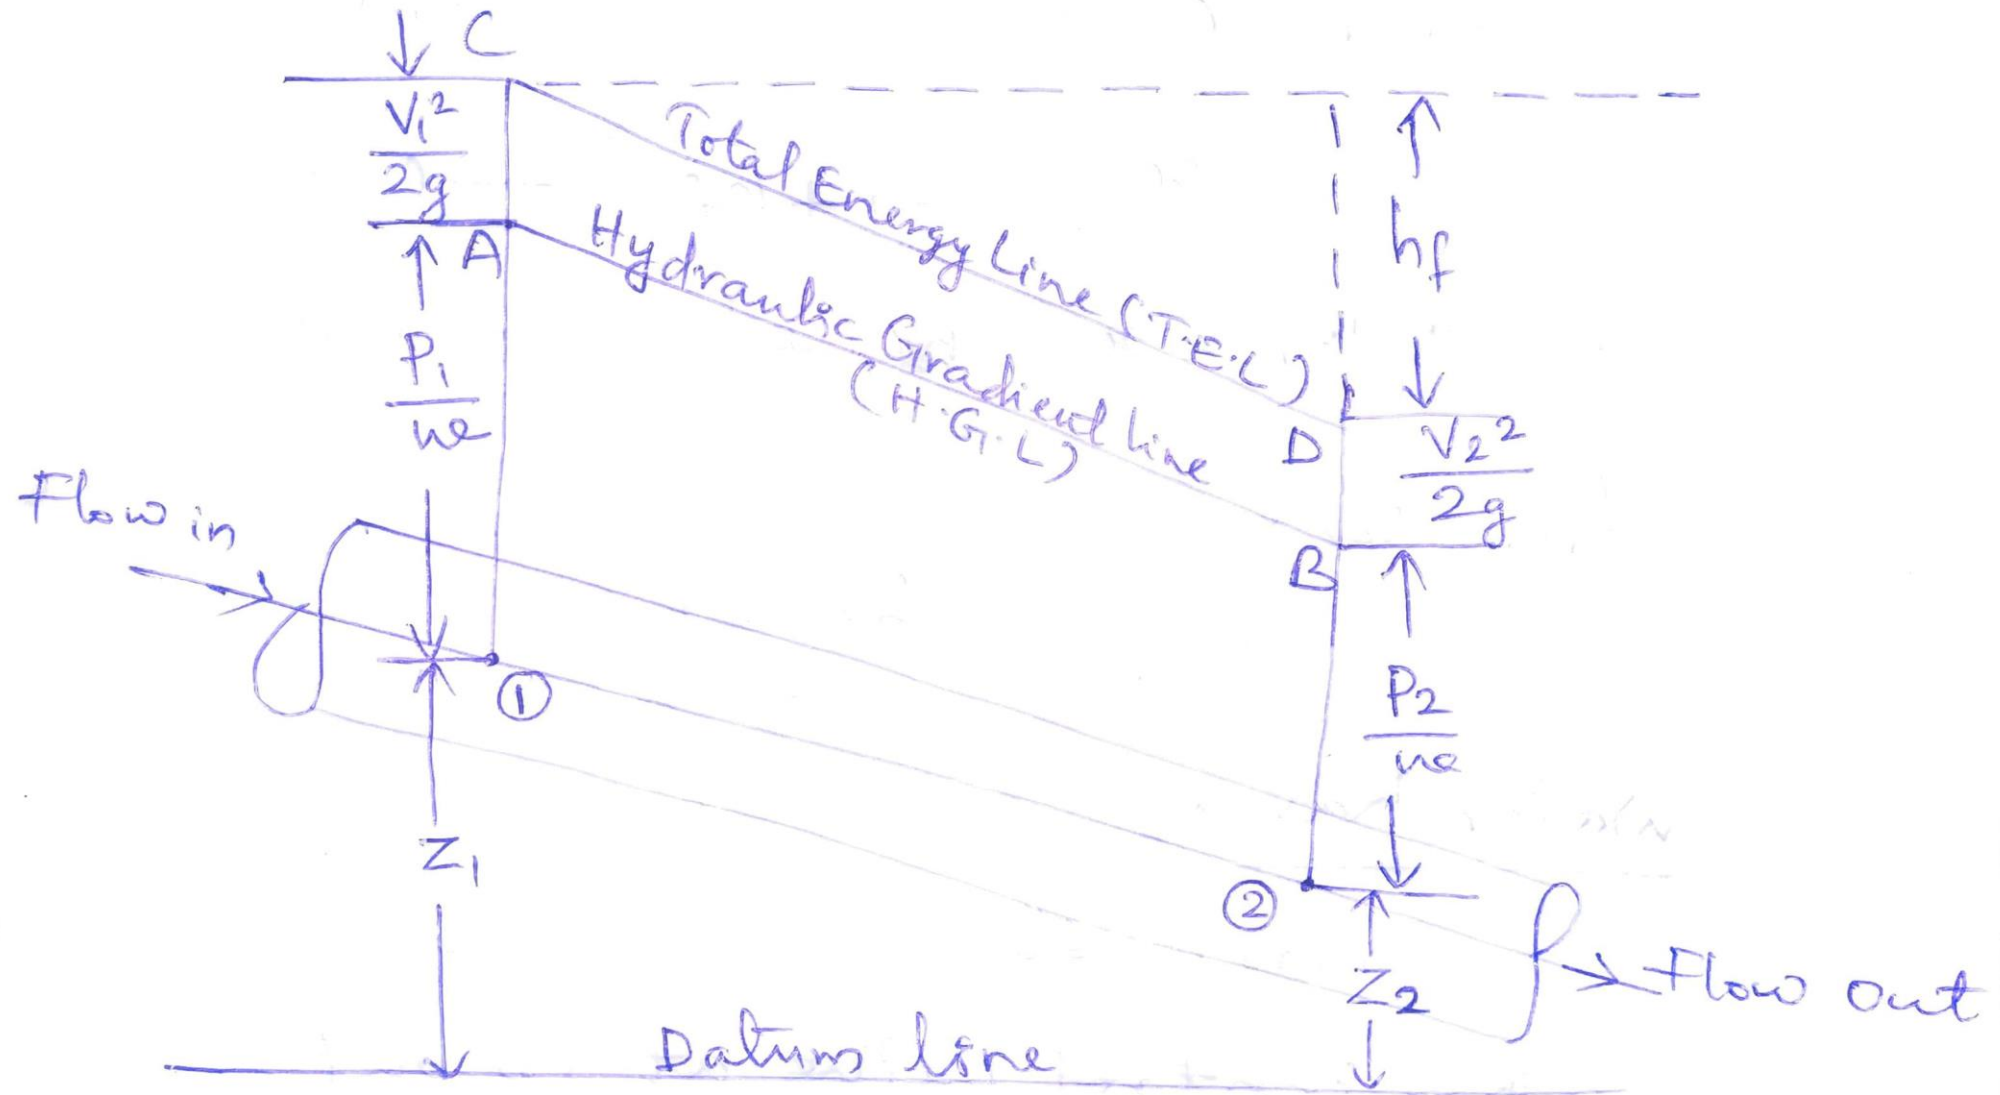 C
V₁²
2g
A
Total Energy Line (T.E.L)
Hydraulic Gradient line
(H.G.L)
hf
P₁
w
D
V₂²
2g
Flow in
B
①
P₂
w
Z₁
②
Z₂
Flow out
Datum line